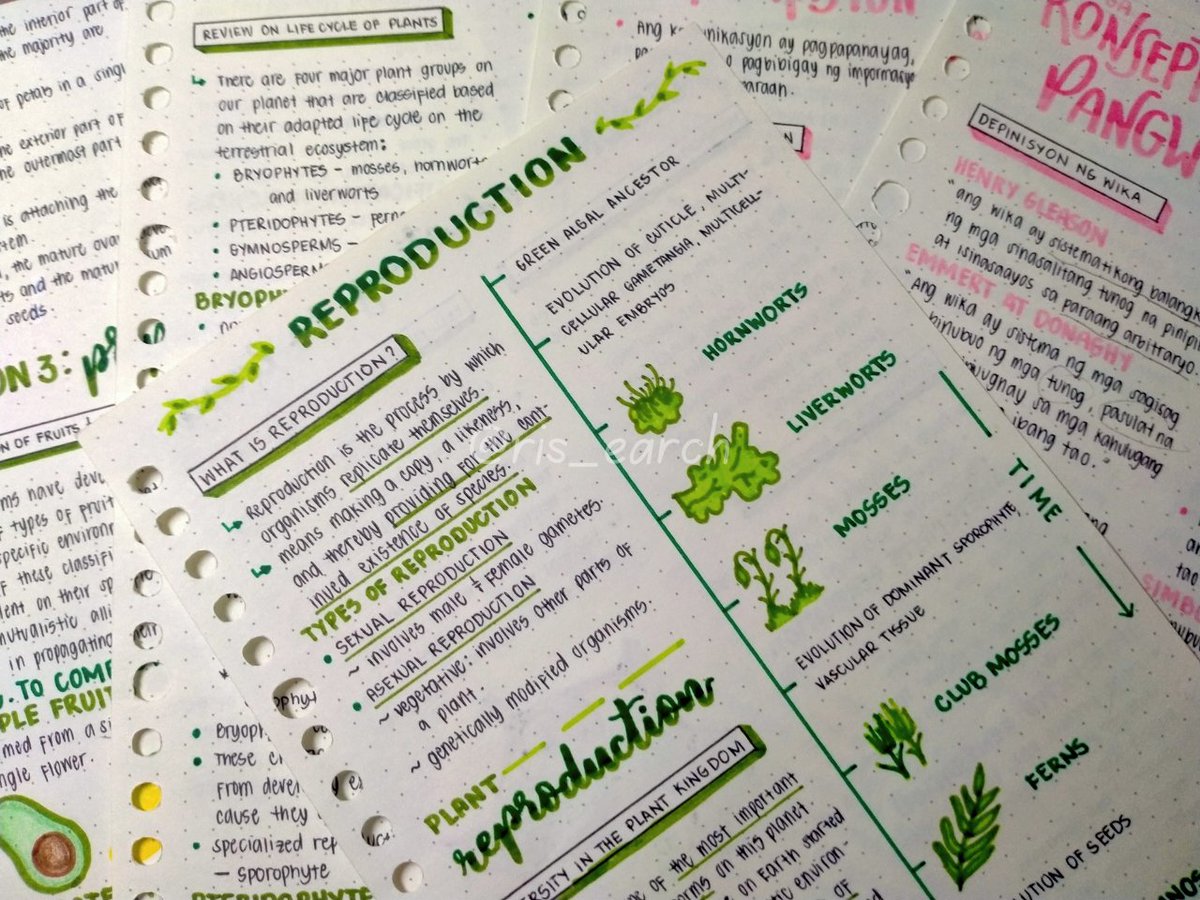 the interior part of
the majority are
of petals in a
the exterior part of
the outermost part
is attaching the
the mature
ts and the
seeds.
ON 3:
ON OF FRUITS
ms have
types of
specific
F these
on their
mutualistic
in propagating
TO
FRUIT
med from a
ngle flower.
REVIEW ON LIFE CYCLE OF PLANTS
↳ There are four major plant groups on
our planet that are classified based
on their adapted life cycle on the
terrestrial ecosystem:
• BRYOPHYTES - mosses, hornworts
and liverworts
• PTERIDOPHYTES -
• GYMNOSPERMS -
• ANGIOSPERM
BRYOPHY
• Bryoph
• These
from
cause they
• specialized
- sporophyte
PTERIDOPHYTE
REPRODUCTION
WHAT IS REPRODUCTION?
↳ Reproduction is the process by which
organisms replicate themselves.
↳ means making a copy, a likeness,
and thereby providing for the cont-
inued existence of species.
TYPES OF REPRODUCTION
• SEXUAL REPRODUCTION
~ involves male & female gametes.
• ASEXUAL REPRODUCTION
~ vegetative: involves other parts of
a plant.
~ genetically modified organisms.
PLANT
reproduction
ERSITY IN THE PLANT KINGDOM
of the most important
on this planet
on Earth started
environ-
of
GREEN ALGAL ANCESTOR
EVOLUTION OF CUTICLE, MULTI-
CELLULAR GAMETANGIA, MULTICELL-
ULAR EMBRYOS
HORNWORTS
LIVERWORTS
MOSSES
TIME
EVOLUTION OF DOMINANT SPOROPHYTE,
VASCULAR TISSUE
CLUB MOSSES
FERNS
OF SEEDS
©ris_earch
Ang ay pagpapanayag,
pagbibigay ng
KONSEP
PANGW
DEPINISYON NG WIKA
HENRY GLEASON
"ang wika ay sistematikong balangk
ng mga sinasalitang tunog na pinipi
at isinasaayos sa paraang arbitraryo.
EMMERT AT DONAGHY
"Ang wika ay sistema ng mga sagisag
binubuo ng mga tunog, pasulat na
sa mga kahulugang
ibang tao."
SIMB